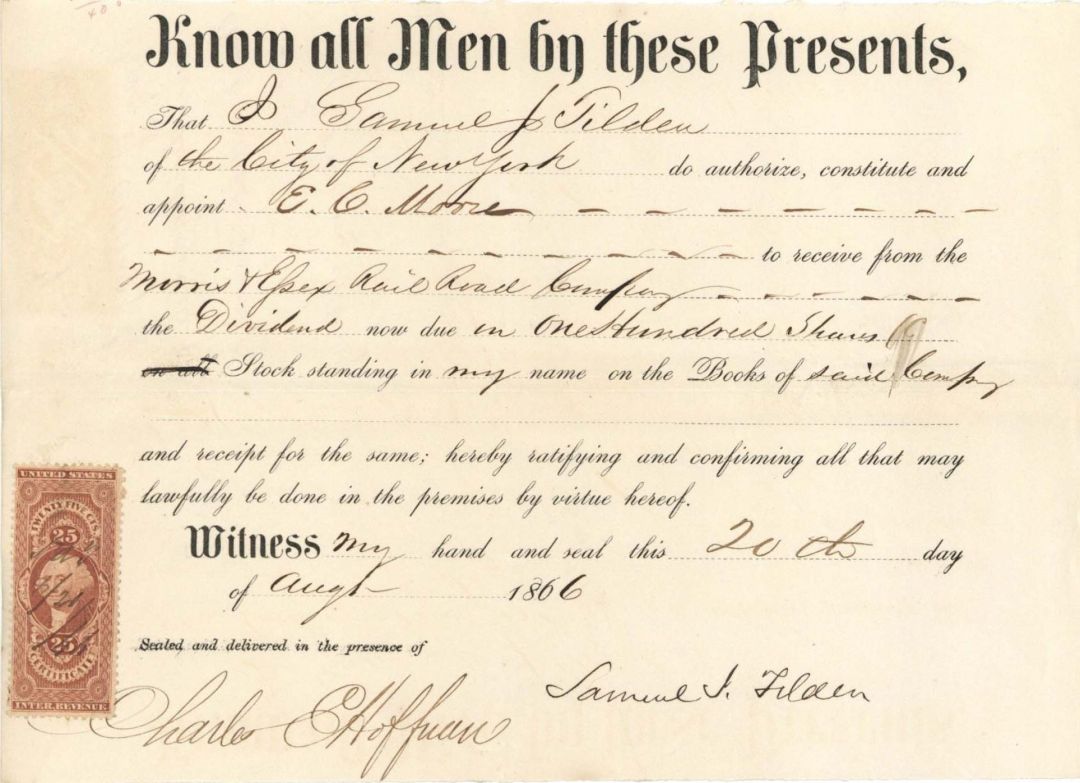 Know all Men by these Presents,
That I Samuel J Tilden
of the City of New York do authorize, constitute and
appoint E. C. Moore
to receive from the
Morris & Essex Rail Road Company
the Dividend now due on One Hundred Shares
on all Stock standing in my name on the Books of said Company
and receipt for the same; hereby ratifying and confirming all that may
lawfully be done in the premises by virtue hereof.
Witness my hand and seal this 20th day
of Augt 1866
Sealed and delivered in the presence of
Samuel J. Tilden
Charles E Hoffman
UNITED STATES
TWENTY FIVE CTS
25
25
CERTIFICATE
INTER. REVENUE